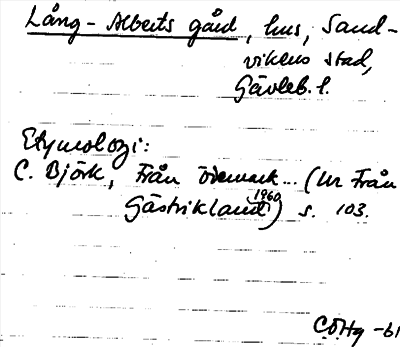 Lång-Alberts gård, hus, Sand-
vikens stad,
Gävleb. l.
Etymologi:
C. Björk, Från ödemark... (Ur Från
Gästrikland 1960) s. 103.
C.Ö.Hg -61